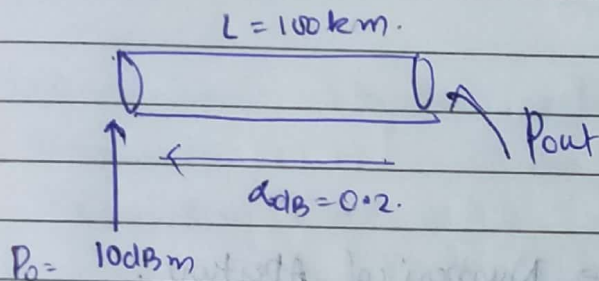 L = 100km.
Pout
αdB = 0.2.
P₀ = 10dBm